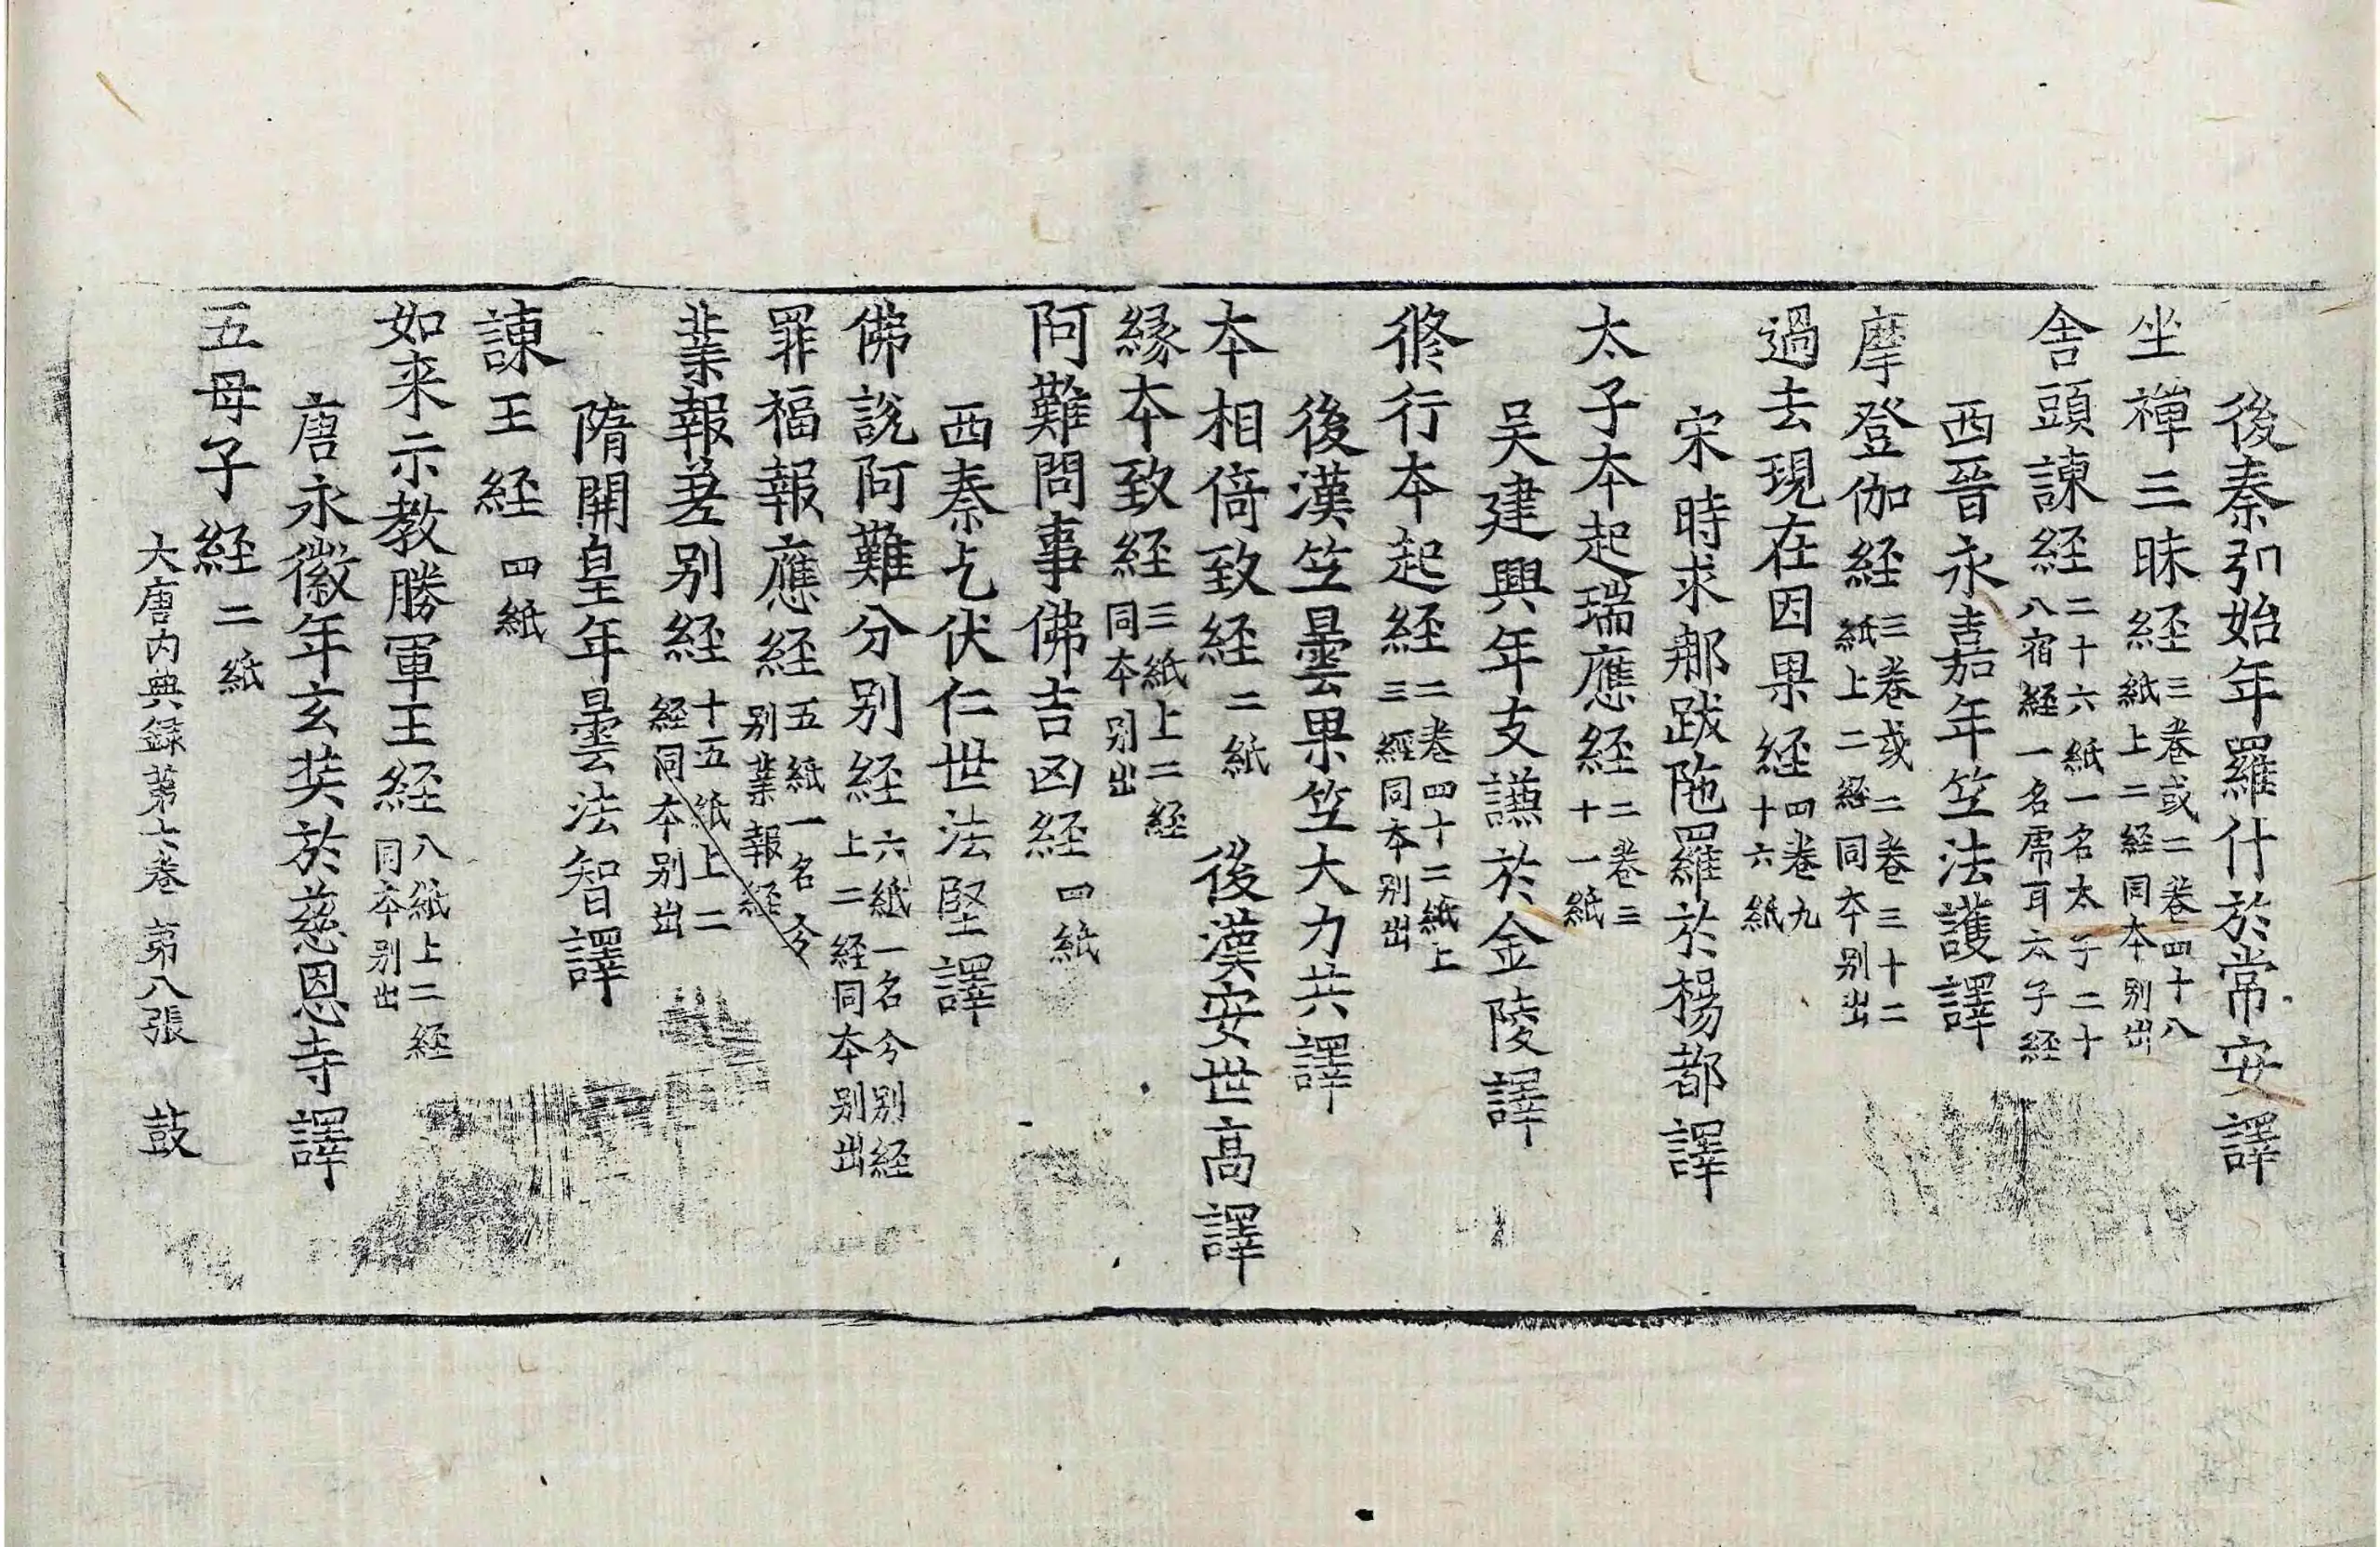 後秦弘始年羅什於常安譯
坐禪三昧経三卷或二卷四十八紙上二経同本別出
舎頭諫経二十六紙一名太子二十八宿経一名虎耳太子経
西晉永嘉年竺法護譯
摩登伽経三卷或二卷三十二紙上二経同本別出
過去現在因果経四卷九十六紙
宋時求那跋陁羅於楊都譯
太子本起瑞應経二卷三十一紙
吴建興年支謙於金陵譯
修行本起経二卷四十二紙上三經同本別出
後漢竺曇果竺大力共譯
本相倚致経二紙 後漢安世高譯
縁本致経三紙上二経同本別出
阿難問事佛吉凶経四紙
西秦乞伏仁世法堅譯
佛說阿難分別経六紙一名今別経上二経同本別出
罪福報應経五紙一名今別業報経
業報差別経十五紙上二経同本別出
隋開皇年曇法智譯
諫王経四紙
如来示教勝軍王経八紙上二経同本別出
唐永徽年玄奘於慈恩寺譯
五母子経二紙
大唐内典録第七卷 第八張 鼓